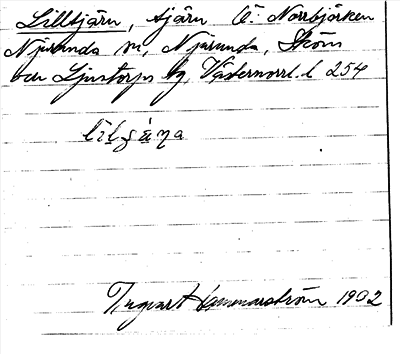 Lilltjärn, tjärn Ö. Norrbjörken
Njurunda sn, Njurunda, Sköns
och Ljustorps tg, Västernorrl. l 254
Ingvart Hammarström 1902